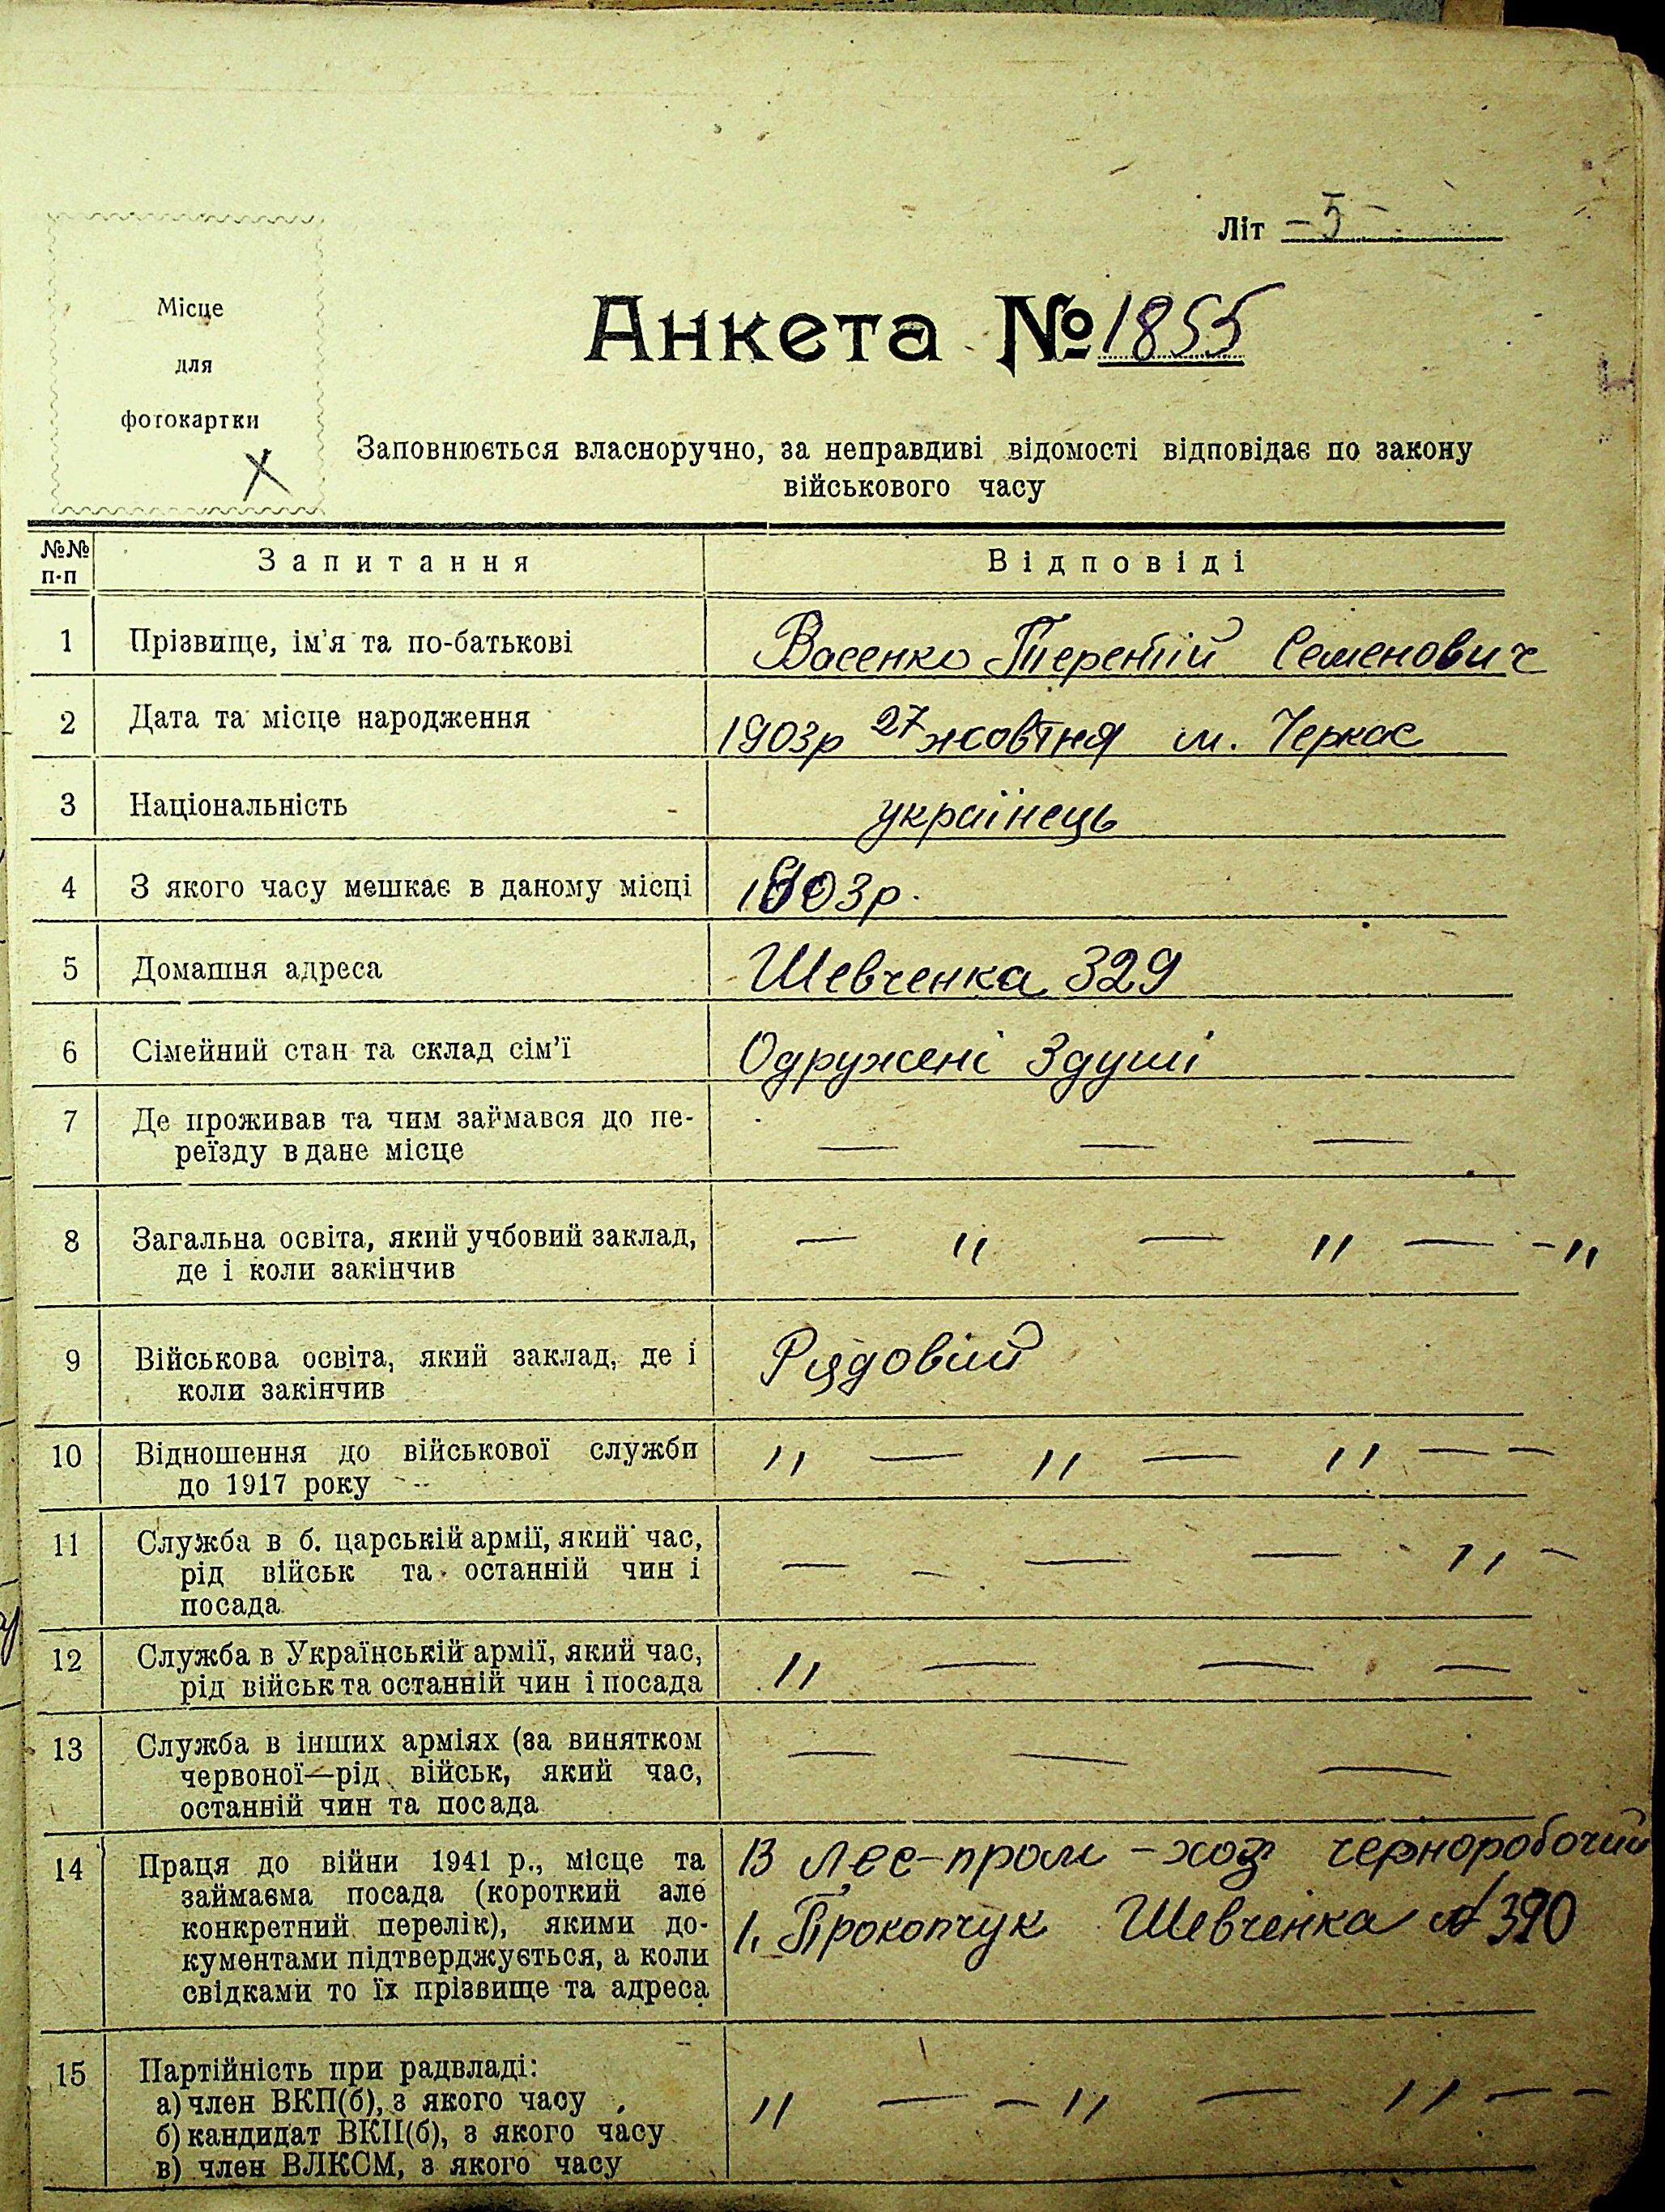 Літ – 5 –
Місце
для
фотокартки
X
Анкета № 1855
Заповнюється власноручно, за неправдиві відомості відповідає по закону
військового часу
№№ п-п Запитання Відповіді
1 Прізвище, ім'я та по-батькові Васенко Терентій Семенович
2 Дата та місце народження 1903р 27 жовтня м. Черкас
3 Національність українець
4 З якого часу мешкає в даному місці 1903р.
5 Домашня адреса Шевченка 329
6 Сімейний стан та склад сім'ї Одружені 3 душі
7 Де проживав та чим займався до пе- — — —
реїзду в дане місце
8 Загальна освіта, який учбовий заклад, — " — " — - "
де і коли закінчив
9 Військова освіта, який заклад, де і Рядовій
коли закінчив
10 Відношення до військової служби " — " — " — —
до 1917 року
11 Служба в б. царській армії, який час, — — — — " —
рід військ та останній чин і
посада
12 Служба в Українській армії, який час, " — — —
рід військ та останній чин і посада
13 Служба в інших арміях (за винятком — — —
червоної—рід військ, який час,
останній чин та посада
14 Праця до війни 1941 р., місце та В лес-пром-хоз чорноробочий
займаєма посада (короткий але
конкретний перелік), якими до- 1. Прокопчук Шевченка № 390
кументами підтверджується, а коли
свідками то їх прізвище та адреса
15 Партійність при радвладі:
а) член ВКП(б), з якого часу " — - " — " — -
б) кандидат ВКП(б), з якого часу
в) член ВЛКСМ, з якого часу